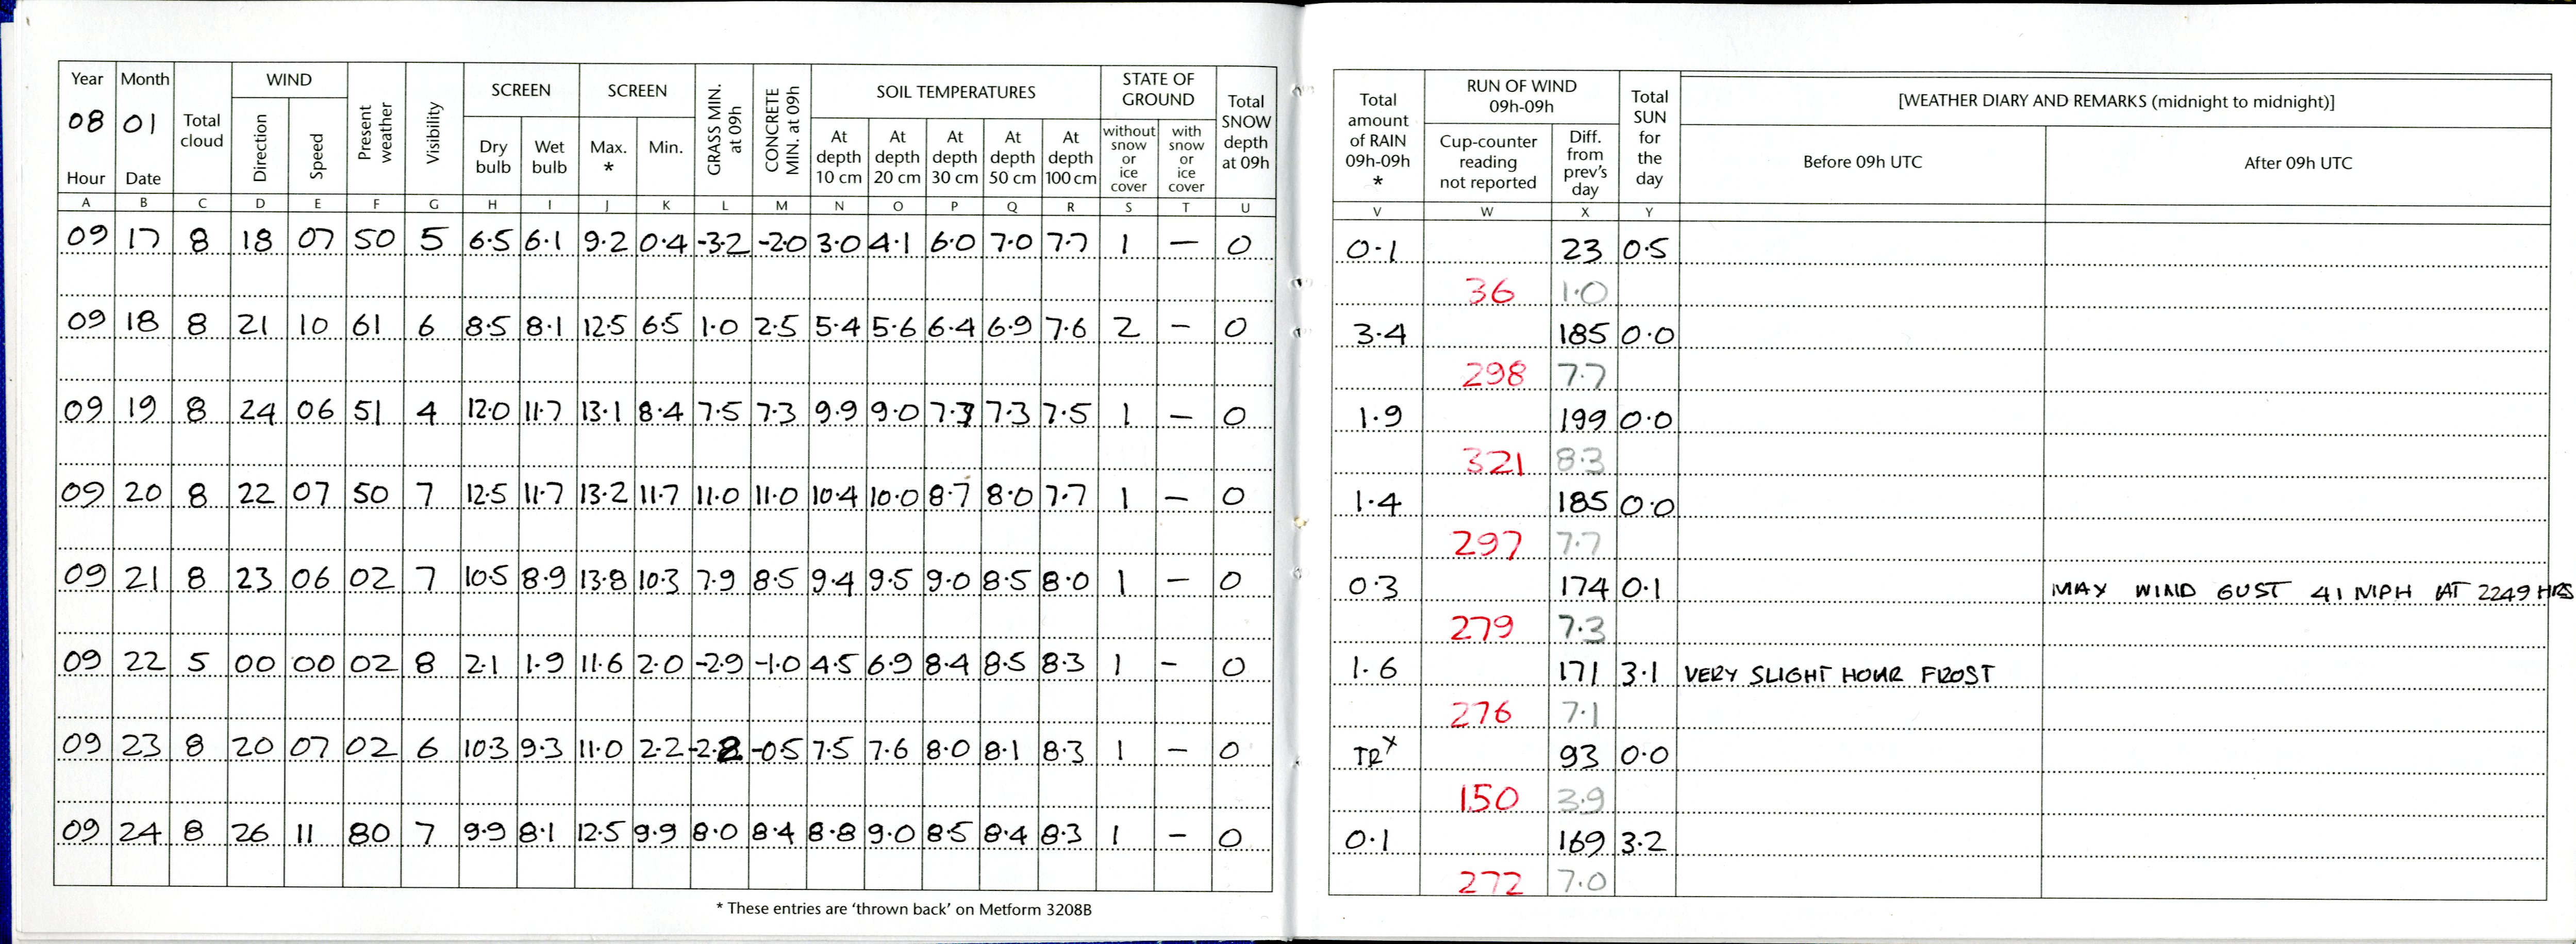 Year Month Total cloud WIND Present weather Visibility SCREEN SCREEN GRASS MIN. at 09h CONCRETE MIN. at 09h SOIL TEMPERATURES STATE OF GROUND Total SNOW depth at 09h
08 01 Direction Speed Dry bulb Wet bulb Max. * Min. At depth 10 cm At depth 20 cm At depth 30 cm At depth 50 cm At depth 100 cm without snow or ice cover with snow or ice cover
Hour Date
A B C D E F G H I J K L M N O P Q R S T U
09 17 8 18 07 50 5 6.5 6.1 9.2 0.4 -3.2 -2.0 3.0 4.1 6.0 7.0 7.7 1 — 0
09 18 8 21 10 61 6 8.5 8.1 12.5 6.5 1.0 2.5 5.4 5.6 6.4 6.9 7.6 2 — 0
09 19 8 24 06 51 4 12.0 11.7 13.1 8.4 7.5 7.3 9.9 9.0 7.7 7.3 7.5 1 — 0
09 20 8 22 07 50 7 12.5 11.7 13.2 11.7 11.0 11.0 10.4 10.0 8.7 8.0 7.7 1 — 0
09 21 8 23 06 02 7 10.5 8.9 13.8 10.3 7.9 8.5 9.4 9.5 9.0 8.5 8.0 1 — 0
09 22 5 00 00 02 8 2.1 1.9 11.6 2.0 -2.9 -1.0 4.5 6.9 8.4 8.5 8.3 1 — 0
09 23 8 20 07 02 6 10.3 9.3 11.0 2.2 -2.2 -0.5 7.5 7.6 8.0 8.1 8.3 1 — 0
09 24 8 26 11 80 7 9.9 8.1 12.5 9.9 8.0 8.4 8.8 9.0 8.5 8.4 8.3 1 — 0
* These entries are 'thrown back' on Metform 3208B
Total amount of RAIN 09h-09h * RUN OF WIND 09h-09h Total SUN for the day [WEATHER DIARY AND REMARKS (midnight to midnight)]
Cup-counter reading not reported Diff. from prev's day Before 09h UTC After 09h UTC
V W X Y
0.1 23 0.5
36 1.0
3.4 185 0.0
298 7.7
1.9 199 0.0
321 8.3
1.4 185 0.0
297 7.7
0.3 174 0.1 MAX WIND GUST 41 MPH AT 2249 HRS
279 7.3
1.6 171 3.1 VERY SLIGHT HOAR FROST
276 7.1
TRx 93 0.0
150 3.9
0.1 169 3.2
272 7.0